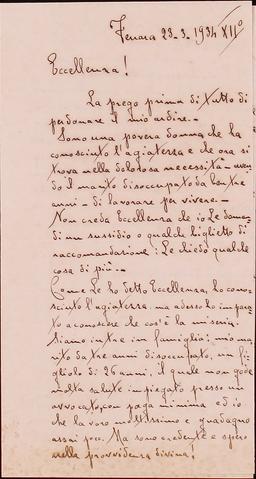 Ferrara 23-3-1934 XIIº
Eccellenza!
La prego prima di tutto di
perdonare il mio ardire.-
Sono una povera donna che ha
conosciuto l'agiatezza e che ora si
trova nella dolorosa necessità - aven-
do il marito disoccupato da ben tre
anni - di lavorare per vivere.-
Non creda Eccellenza che io Le doman-
di un sussidio o qualche biglietto di
raccomandazione: Le chiedo qualche
cosa di più.-
Come Le ho detto Eccellenza, ho cono-
sciuto l'agiatezza, ma adesso ho impara-
to a conoscere che cos'è la miseria.
Siamo in tre in famiglia: mio ma-
rito da tre anni disoccupato, un fi-
gliolo di 26 anni, il quale non gode
molta salute impiegato presso un
avvocato, con paga minima ed io
che lavoro moltissimo e guadagno
assai poco. Ma sono credente e spero
nella provvidenza divina!